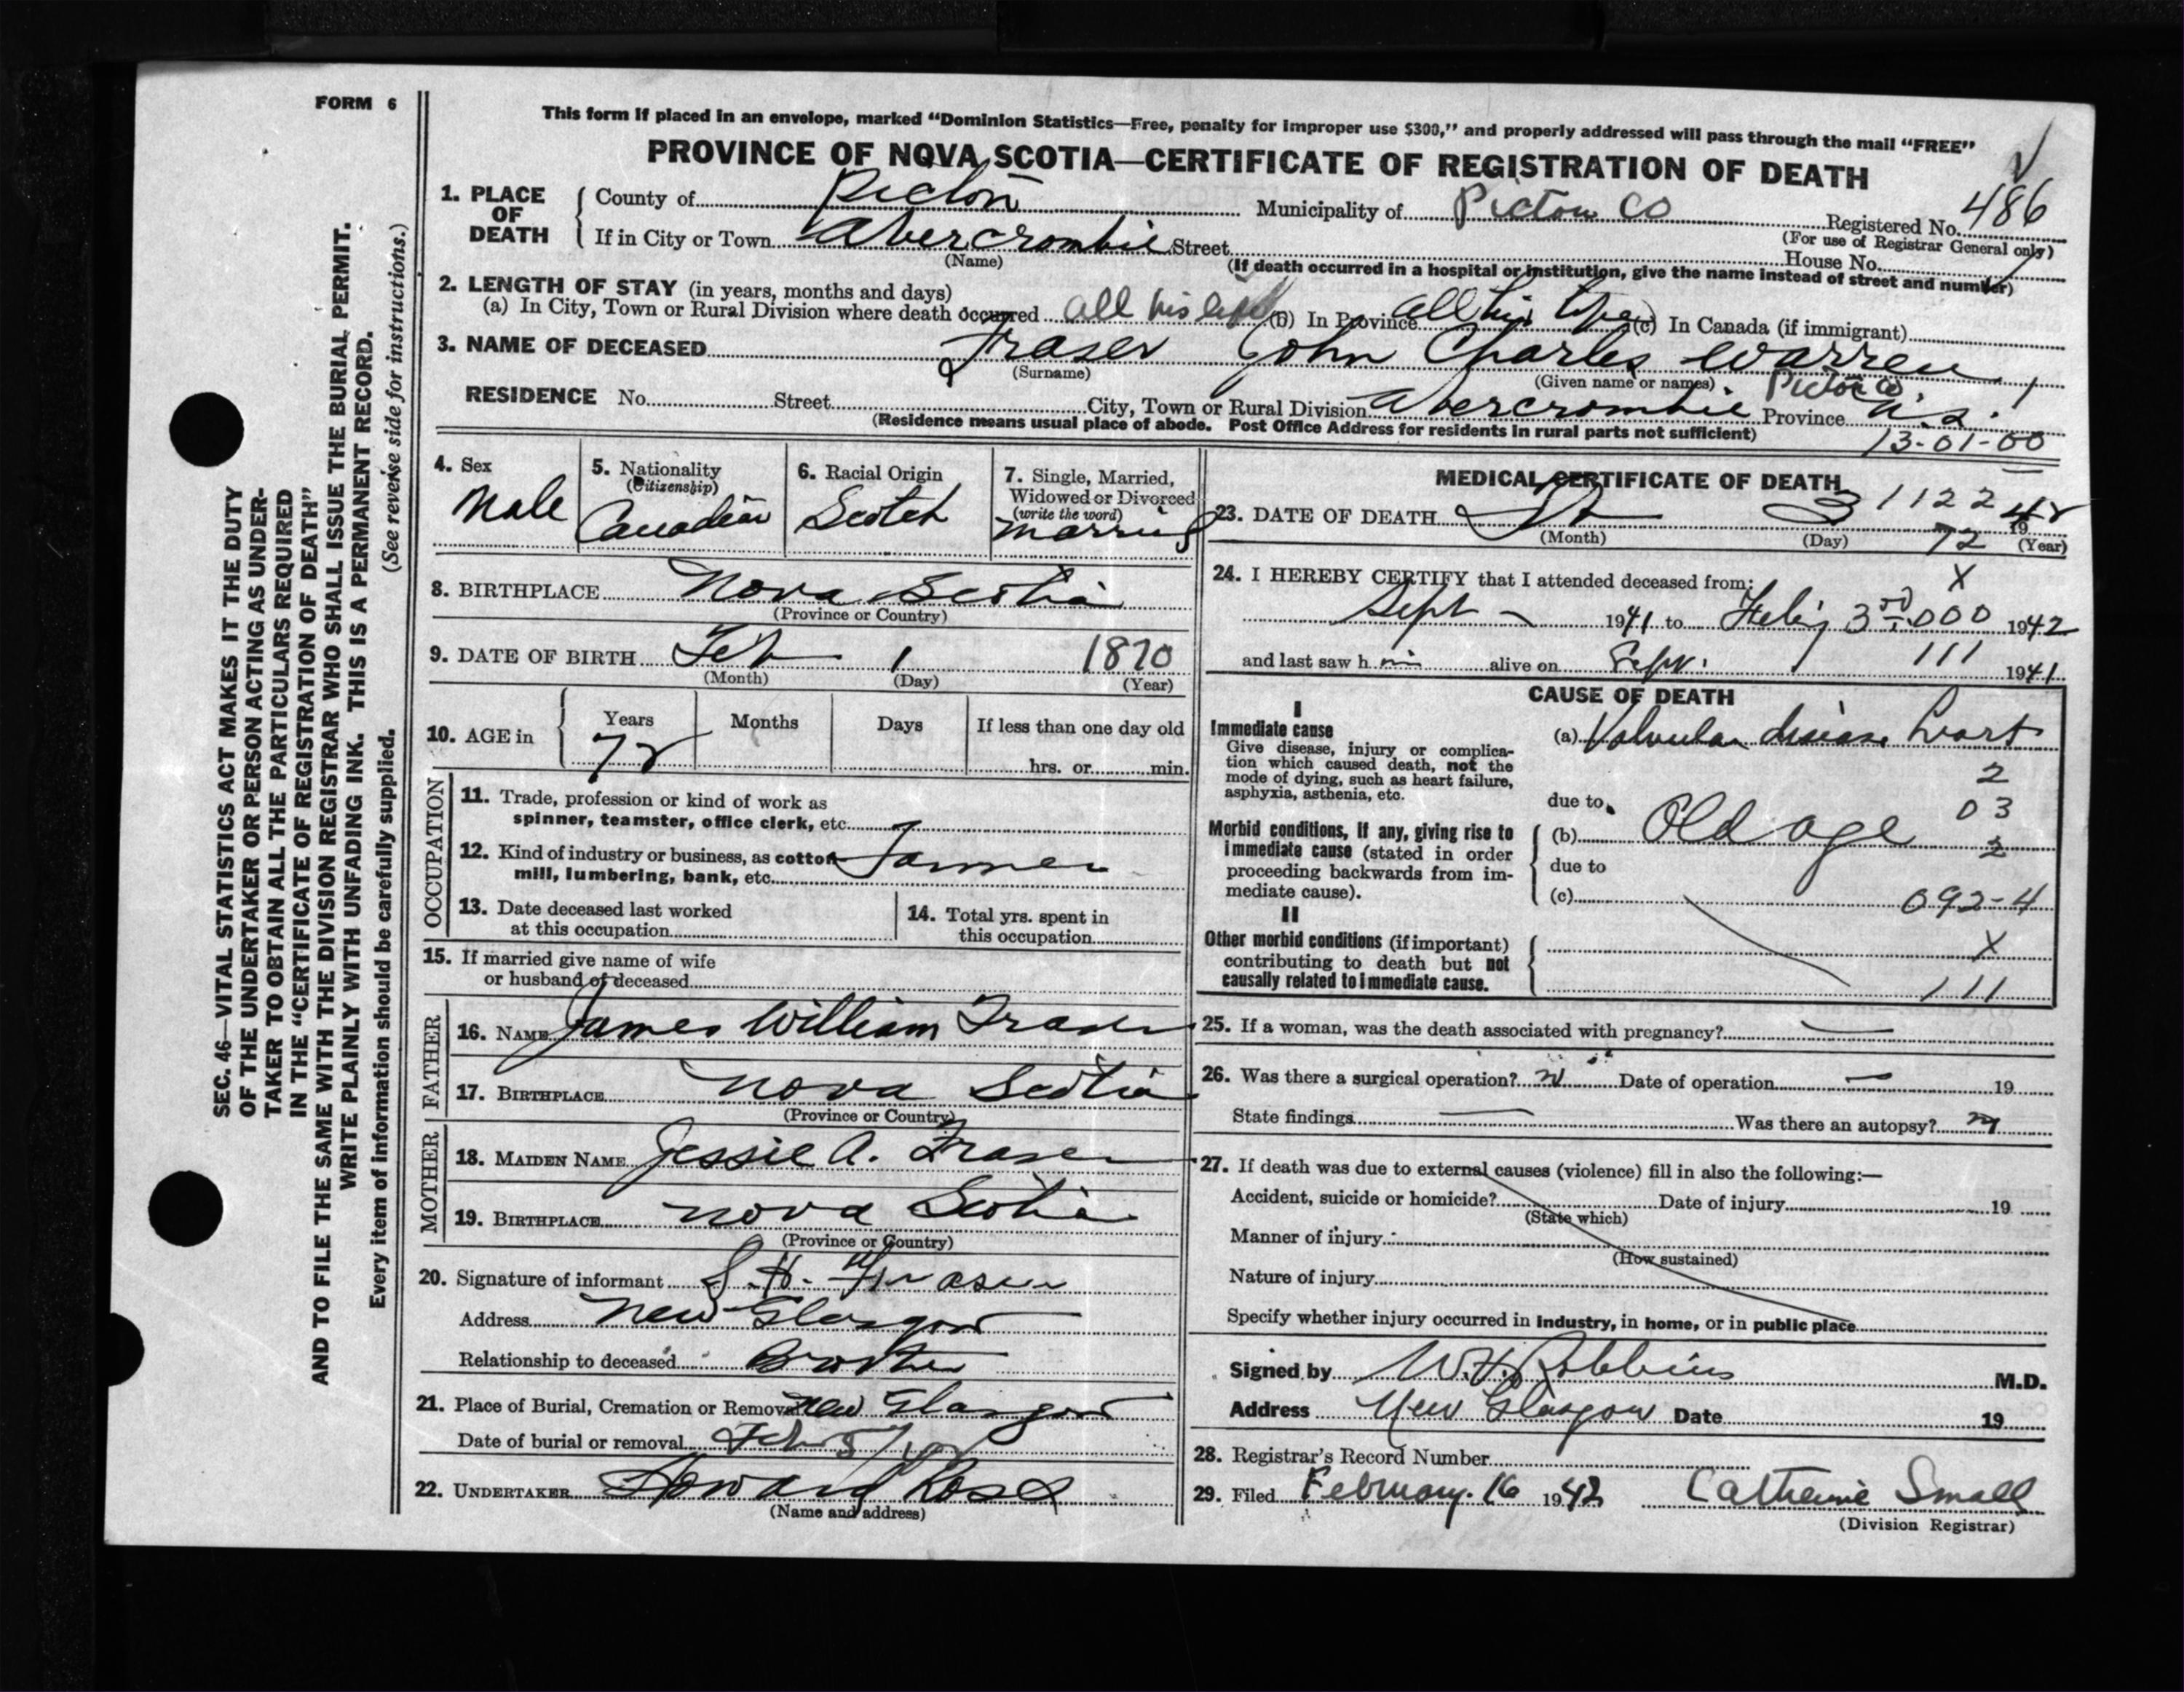 FORM 6
This form if placed in an envelope, marked "Dominion Statistics—Free, penalty for improper use $300," and properly addressed will pass through the mail "FREE"
PROVINCE OF NOVA SCOTIA—CERTIFICATE OF REGISTRATION OF DEATH
1. PLACE OF DEATH County of Pictou Municipality of Pictou Co Registered No. 486
(For use of Registrar General only)
If in City or Town Abercrombie Street House No.
(Name) (If death occurred in a hospital or institution, give the name instead of street and number)
2. LENGTH OF STAY (in years, months and days)
(a) In City, Town or Rural Division where death occurred all his life (b) In Province all his life (c) In Canada (if immigrant)
3. NAME OF DECEASED Fraser John Charles Warren
(Surname) (Given name or names)
Pictou Co
RESIDENCE No. Street City, Town or Rural Division Abercrombie Province N.S.
(Residence means usual place of abode. Post Office Address for residents in rural parts not sufficient)
13-01-00
4. Sex
Male
5. Nationality
(Citizenship)
Canadian
6. Racial Origin
Scotch
7. Single, Married,
Widowed or Divorced
(write the word)
Married
8. BIRTHPLACE Nova Scotia
(Province or Country)
9. DATE OF BIRTH Feb 1 1870
(Month) (Day) (Year)
10. AGE in Years Months Days If less than one day old
72 hrs. or min.
OCCUPATION
11. Trade, profession or kind of work as
spinner, teamster, office clerk, etc.
12. Kind of industry or business, as cotton Farmer
mill, lumbering, bank, etc.
13. Date deceased last worked
at this occupation
14. Total yrs. spent in
this occupation
15. If married give name of wife
or husband of deceased
FATHER
16. NAME James William Fraser
17. BIRTHPLACE Nova Scotia
(Province or Country)
MOTHER
18. MAIDEN NAME Jessie A. Fraser
19. BIRTHPLACE Nova Scotia
(Province or Country)
20. Signature of informant Fraser
Address New Glasgow
Relationship to deceased Brother
21. Place of Burial, Cremation or Removal New Glasgow
Date of burial or removal Feb 5
22. UNDERTAKER Howard Rose
(Name and address)
MEDICAL CERTIFICATE OF DEATH
1122
23. DATE OF DEATH 3 19 42
(Month) (Day) (Year)
72
24. I HEREBY CERTIFY that I attended deceased from:
X
Sept 1941 to Feby 3rd 000 1942
and last saw him alive on Sept. 111 1941
CAUSE OF DEATH
I
Immediate cause
Give disease, injury or complication which caused death, not the
mode of dying, such as heart failure,
asphyxia, asthenia, etc.
(a) Valvular disease heart
2
due to
03
Morbid conditions, if any, giving rise to
immediate cause (stated in order
proceeding backwards from immediate cause).
(b) Old age
2
due to
(c) 092-4
II
Other morbid conditions (if important)
contributing to death but not
causally related to immediate cause.
X
111
25. If a woman, was the death associated with pregnancy? —
26. Was there a surgical operation? Date of operation — 19
State findings — Was there an autopsy?
27. If death was due to external causes (violence) fill in also the following:—
Accident, suicide or homicide? Date of injury 19
(State which)
Manner of injury
(How sustained)
Nature of injury
Specify whether injury occurred in industry, in home, or in public place
Signed by W.H. Robbins M.D.
Address New Glasgow Date 19
28. Registrar's Record Number
29. Filed February 16 1942 Catherine Small
(Division Registrar)
SEC. 46—VITAL STATISTICS ACT MAKES IT THE DUTY
OF THE UNDERTAKER OR PERSON ACTING AS UNDER-
TAKER TO OBTAIN ALL THE PARTICULARS REQUIRED
IN THE "CERTIFICATE OF REGISTRATION OF DEATH"
AND TO FILE THE SAME WITH THE DIVISION REGISTRAR WHO SHALL ISSUE THE BURIAL PERMIT.
WRITE PLAINLY WITH UNFADING INK. THIS IS A PERMANENT RECORD.
Every item of information should be carefully supplied. (See reverse side for instructions.)